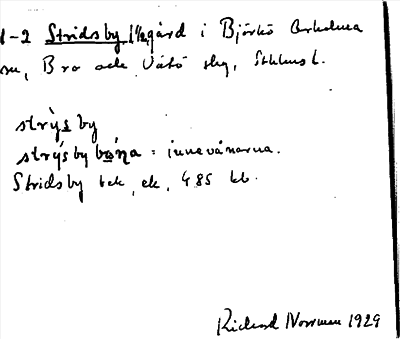 1-2 Stridsby 1 1/2 gård i Björkö Arholma
sn, Bro och Vätö skg, Sthlms l.
strỳs by
strýs by bōņa = innevånarna.
Stridsby tck, ek, 485 kb.
Richard Norrman 1929